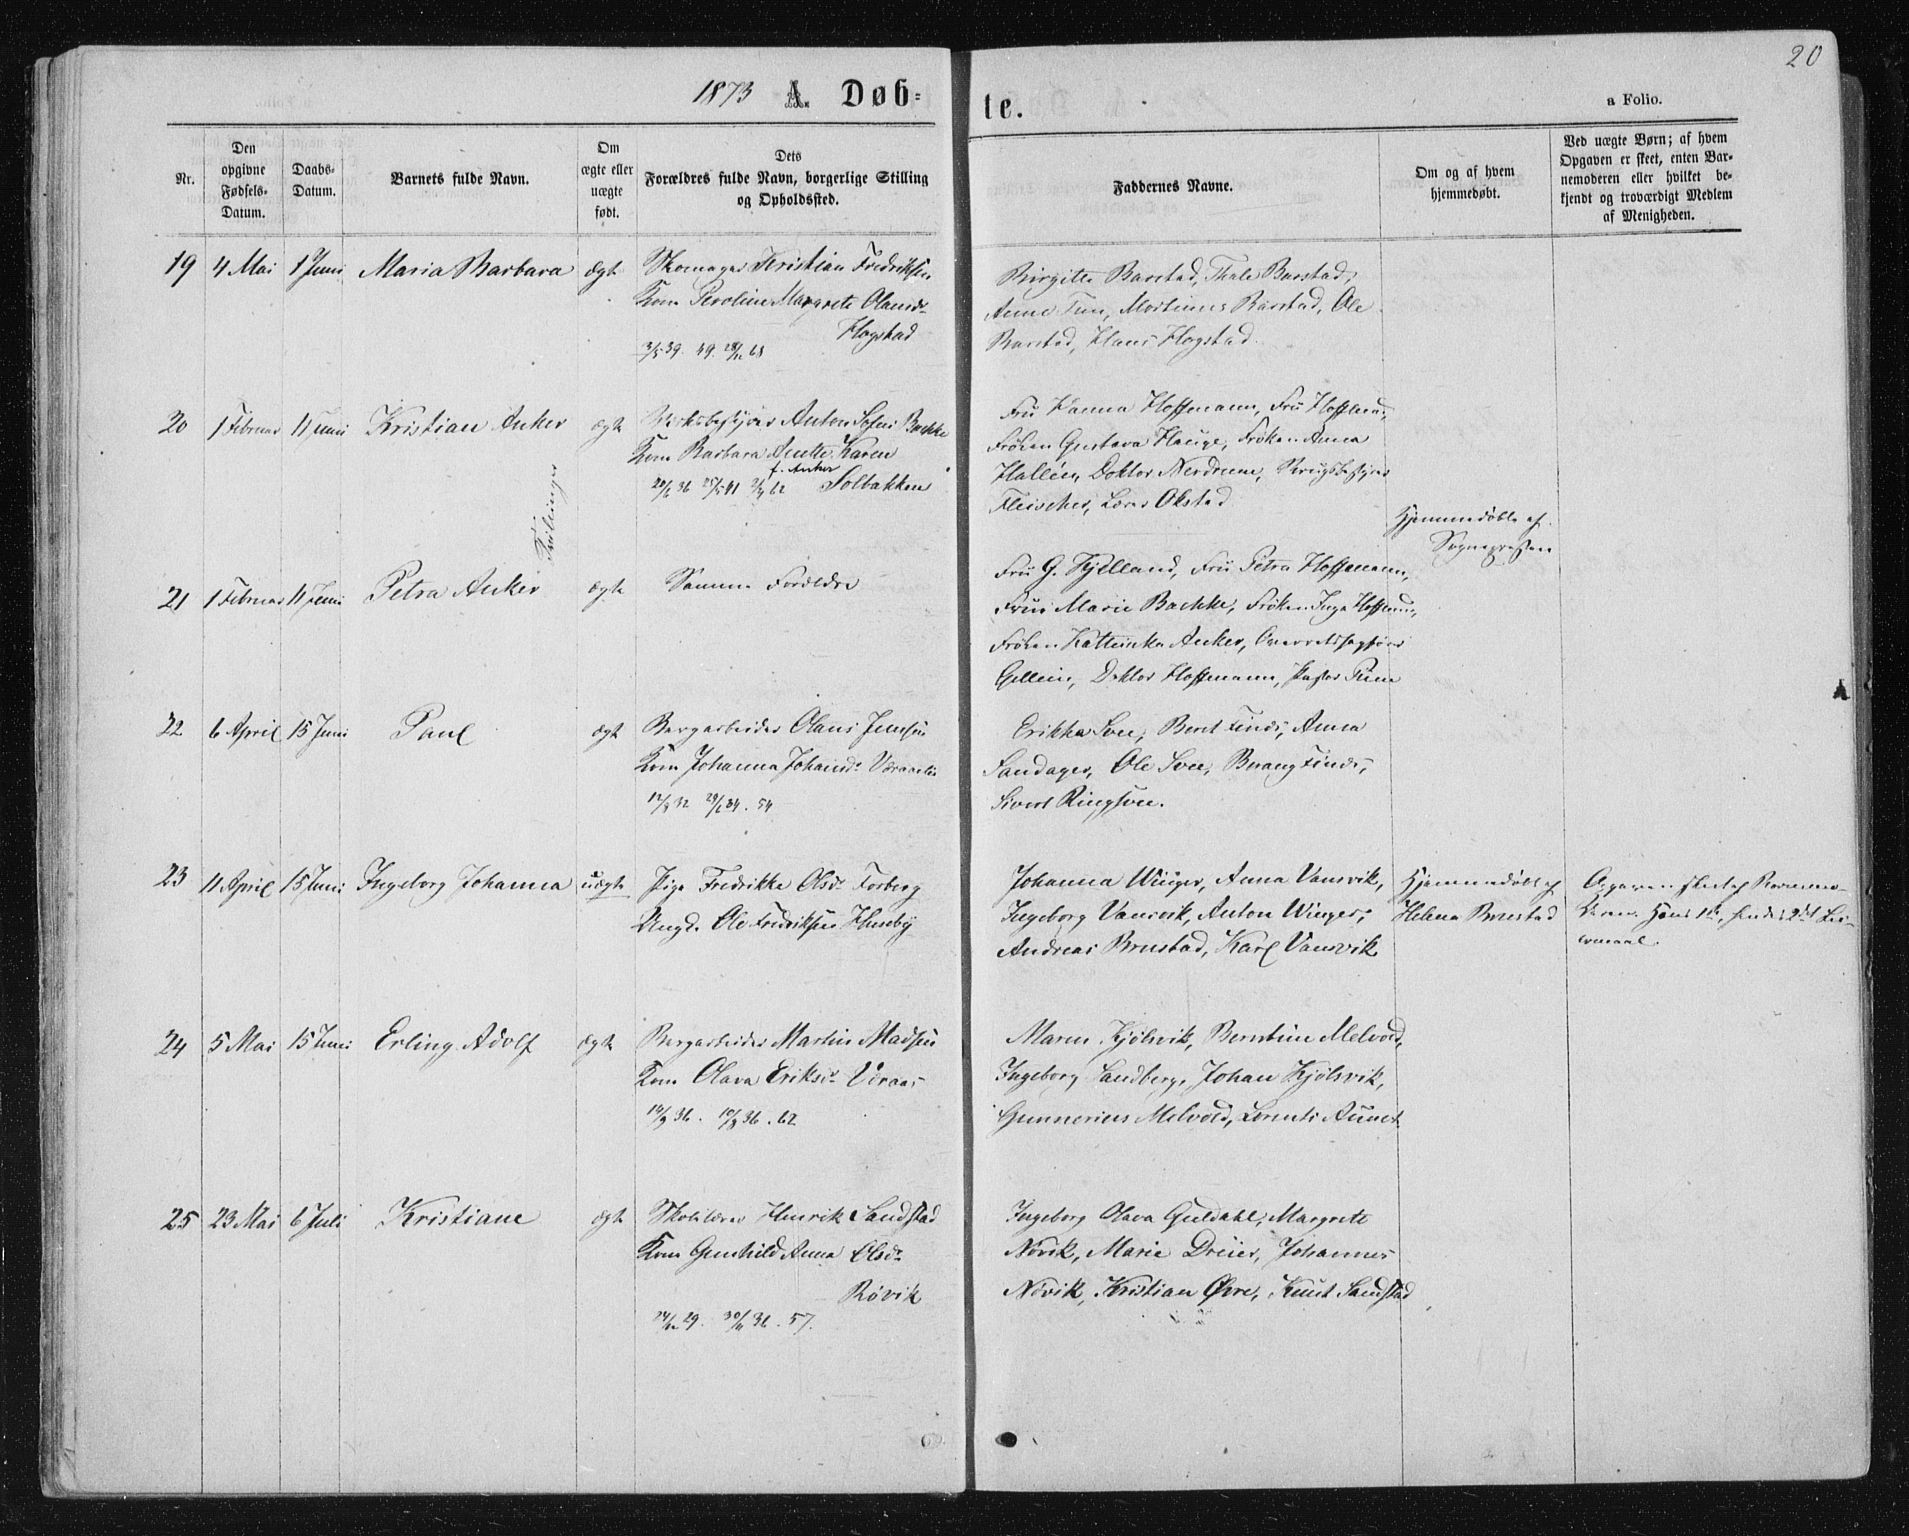 20
1873 A. Døb-
te.
a Folio.
Nr.
Den
opgivne
Fødsels-
Datum.
Daabs-
Datum.
Barnets fulde Navn.
Om
ægte eller
uægte
født.
Dets
Forældres fulde Navn, borgerlige Stilling
og Opholdssted.
Faddernes Navne.
Om og af hvem
hjemmedøbt.
Ved uægte Børn; af hvem
Opgaven er skeet, enten Bar-
nemoderen eller hvilket be-
kjendt og troværdigt Medlem
af Menigheden.
19 4 Mai 1 Juni Maria Barbara ægte Skomager Kristian Fredriksen
Kone Margrete Olausdr
Hogstad
Birgitte Barstad, Thale Barstad,
Anne Tun, Mortinus Barstad, Ole
Barstad, Hans Hogstad.
20 1 Februar 11 Juni Kristian Anker ægte Anton Sofus Bachke
Kone Barbara Anette Karen
f. Anker
Solbakken
Tvillinger
Fru Hanna Hoffmann, Fru Hoffmann,
Frøken Gustava Hauge, Frøken Anna
Halléen, Doktor Nerdrum, Brugsbestyrer
Fleischer, Lærer Okstad
Hjemmedøbte af
Sognepresten
21 1 Februar 11 Juni Petra Anker ægte Samme Forældre
Fru G. Kjelland, Fru Petra Hoffmann,
Frue Marie Bachke, Frøken Inga Hoffmann,
Frøken Kattinka Anker, Overretssagfører
Doktor Hoffmann, Pastor
22 6 April 15 Juni Paul ægte Bergarbeider Olaus Jensen
Kone Johanna Johansdr
12/8 32 29/6 34. 54
Erikka Svee, Beret Finds, Anna
Sandager, Ole Svee,
Sivert Ringsvee.
23 11 April 15 Juni Ingeborg Johanna uægte Pige Fredrikke Olsdr Forberg
Ungk. Ole Fredriksen Huseby
Johanna Winger, Anna Vansvik,
Ingeborg Vansvik, Anton Winger,
Andreas Brustad, Karl Vansvik
Hjemmedøbt af
Helena Brustad
Opgaven skeet af Barnemo-
deren. Hans 1ste, hendes 2det Lei-
ermaal.
24 5 Mai 15 Juni Erling Adolf ægte Bergarbeider Martin Madsen
Kone Olava Eriksdr Veraas
Maren Kjölsvik, Berntine Melvold,
Ingeborg Sandberg, Johan Kjölsvik,
Gunnerius Melvold, Lorents Aunet
25 23 Mai 6 Juli Kristiane ægte Skolelærer Henrik Sandstad
Kone Gunhild Anna Olsdr
Røvik
Ingeborg Olava Guldahl, Margrete
Növik, Marie Dreier, Johannes
Növik, Kristian Øvre, Knut Sandstad